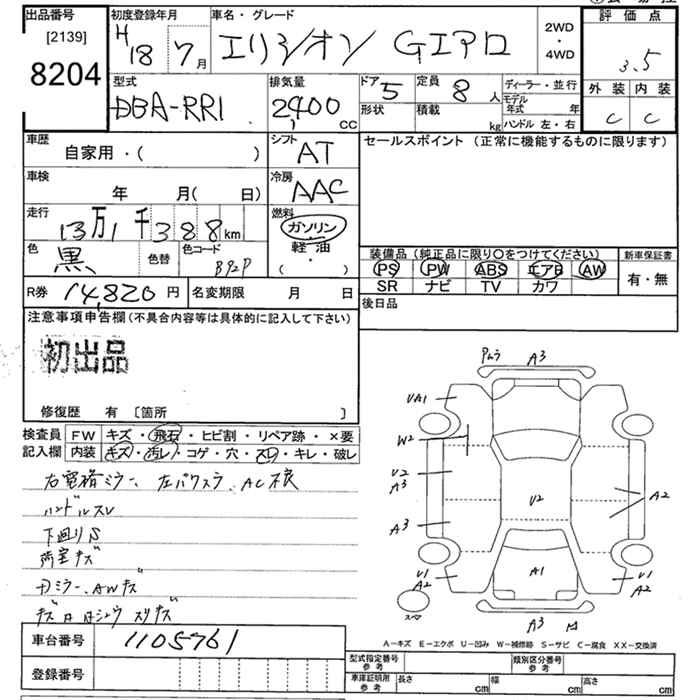 出品番号 初度登録年月 車名・グレード 2WD・4WD 評価点
[2139]
8204
H 18 7月 エリシオン Gエアロ 3.5
型式 排気量 ドア 5 定員 8人 ディーラー・並行 外装 内装
DBA-RR1 2400 CC 形状 積載 kg モデル年式 年 C C
ハンドル 左・右
車歴 シフト セールスポイント (正常に機能するものに限ります)
自家用・( ) AT
車検 冷房
年 月( 日) AAC
走行 燃料
13万1千388km ガソリン
色 黒 色替 色コード B92P 軽油・( )
装備品(純正品に限り○をつけてください) 新車保証書
PS PW ABS エアB AW 有・無
SR ナビ TV カワ
R券 14,820円 名変期限 月 日 後日品
注意事項申告欄(不具合内容等は具体的に記入して下さい)
初出品
修復歴 有 〔箇所 〕
検査員記入欄 FW キズ・飛石・ヒビ割・リペア跡・×要
内装 キズ・汚レ・コゲ・穴・スレ・キレ・破レ
ハンドルスレ
下回りS
荷室キズ
AWキズ
A3
UA1
W2
U2
A3
A3
U2
A2
U1
A2
A1
U1
A2
A3
A-キズ E-エクボ U-凹み W-補修跡 S-サビ C-腐食 XX-交換済
車台番号 1105761
型式指定番号 参考 類別区分番号 参考
登録番号
車庫証明用 参考 長さ cm 幅 cm 高さ cm